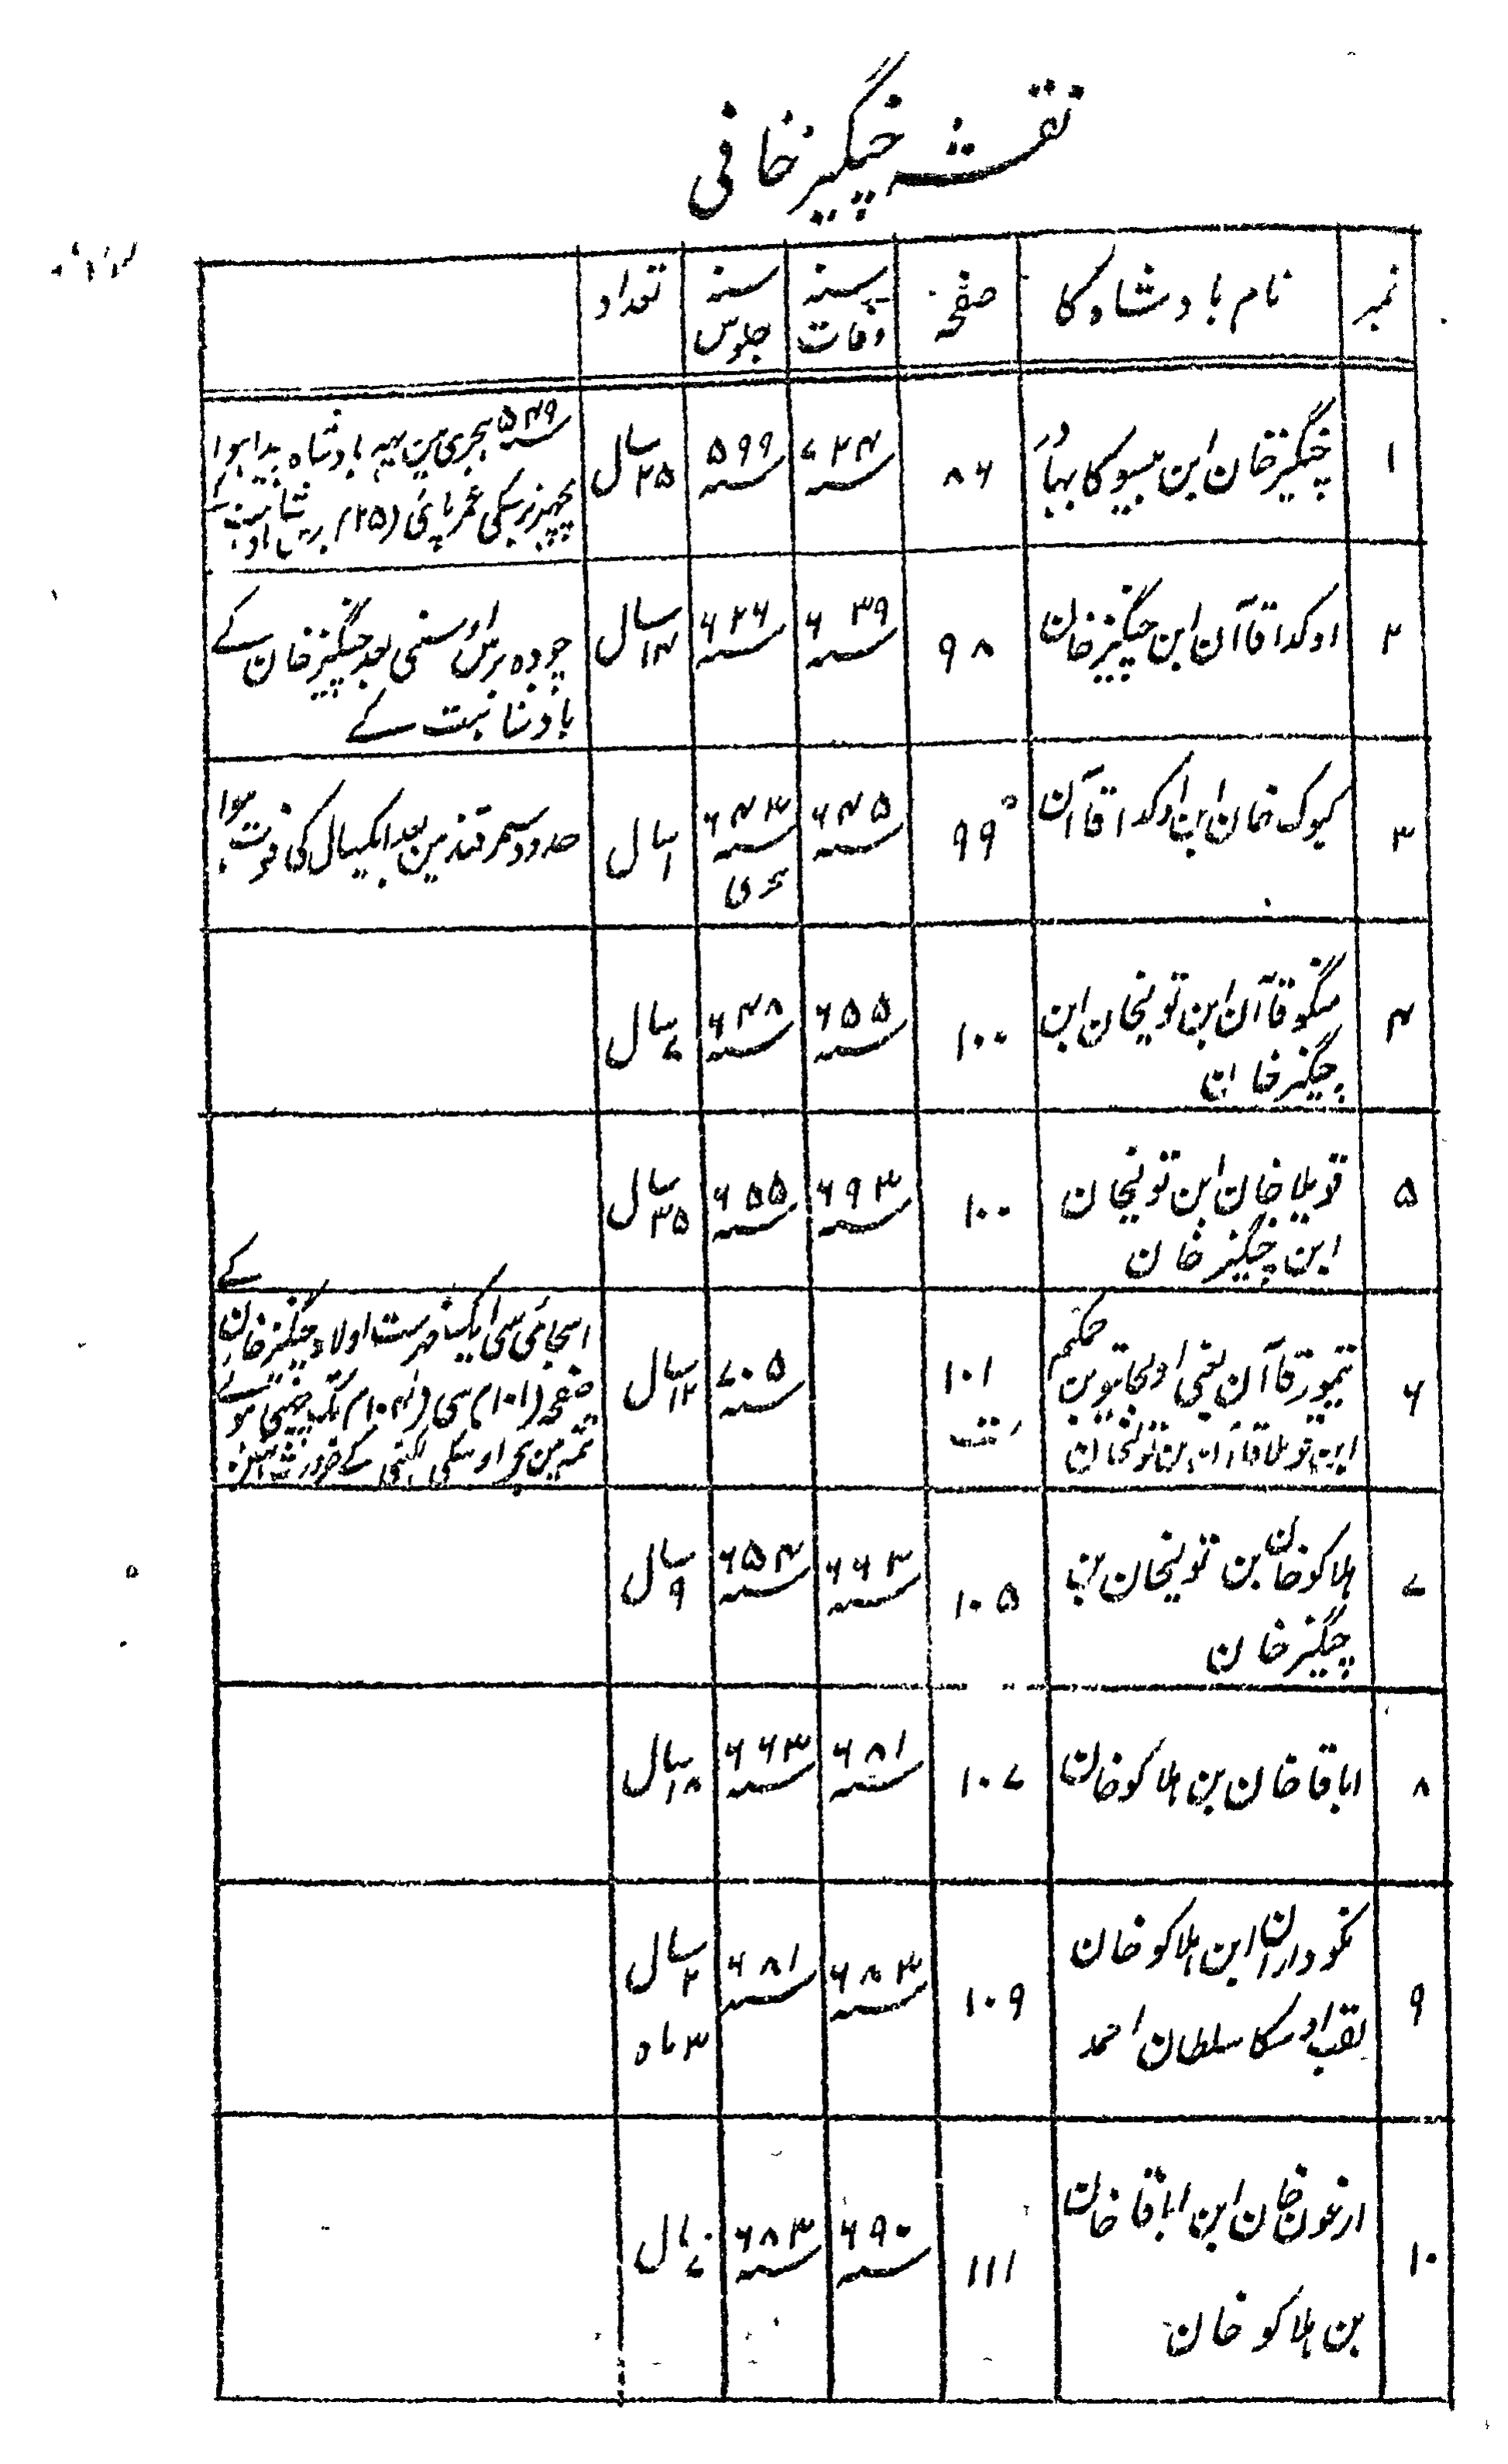 نقشہ چنگیزخانی
نمبر | نام بادشاہ کا | صفحہ | سنہ وفات | سنہ جلوس | تعداد
۱ | چنگیزخان ابن یسوکا بہادر | ۸۶ | ۷۲۴ | ۵۹۹ | ۲۵ سال | ۵۴۹ ہجری مین یہہ بادشاہ پیدا ہوا
پچہتر برسکی عمر پائی (۲۵) برس
۲ | اوکدا قاآن ابن چنگیزخان | ۹۸ | ۶۳۹ | ۶۲۶ | ۱۴ سال | چودہ برس اوسنی بعد چنگیزخان کے
بادشاہت کے
۳ | کیوک خان ابن اوکدا قاآن | ۹۹ | ۶۴۵ | ۶۴۳ ہجری | ۱ سال | حدود سمرقند مین بعد ایکسال کی فوت ہوا
۴ | منگو قاآن ابن تولیخان ابن
چنگیزخان | ۱۰۰ | ۶۵۵ | ۶۴۸ | ۷ سال
۵ | قوبلا خان ابن تولیخان
ابن چنگیز خان | ۱۰۰ | ۶۹۳ | ۶۵۵ | ۳۵ سال
۶ | تیمور قاآن یعنی اولجایتو بن حکیم
ابن قوبلا قاآن بن تولیخان | ۱۰۱ | ۷۰۵ | ۱۲ سال | اسجائی سی ایک فہرست اولاد چنگیزخان کے
صفحہ (۱۰۱) سی (۱۰۴) تک
اوسکی لکہنی کے ضرورت نہین
۷ | ہلاکو خان بن تولیخان بن
چنگیز خان | ۱۰۵ | ۶۶۳ | ۶۵۴ | ۹ سال
۸ | اباقا خان بن ہلاکو خان | ۱۰۷ | ۶۸۱ | ۶۶۳ | ۱۸ سال
۹ | نکودار ابن ہلاکو خان
لقب اوسکا سلطان احمد | ۱۰۹ | ۶۸۳ | ۶۸۱ | ۲ سال
۳ ماہ
۱۰ | ارغون خان ابن اباقا خان
بن ہلاکو خان | ۱۱۱ | ۶۹۰ | ۶۸۳ | ۷ سال